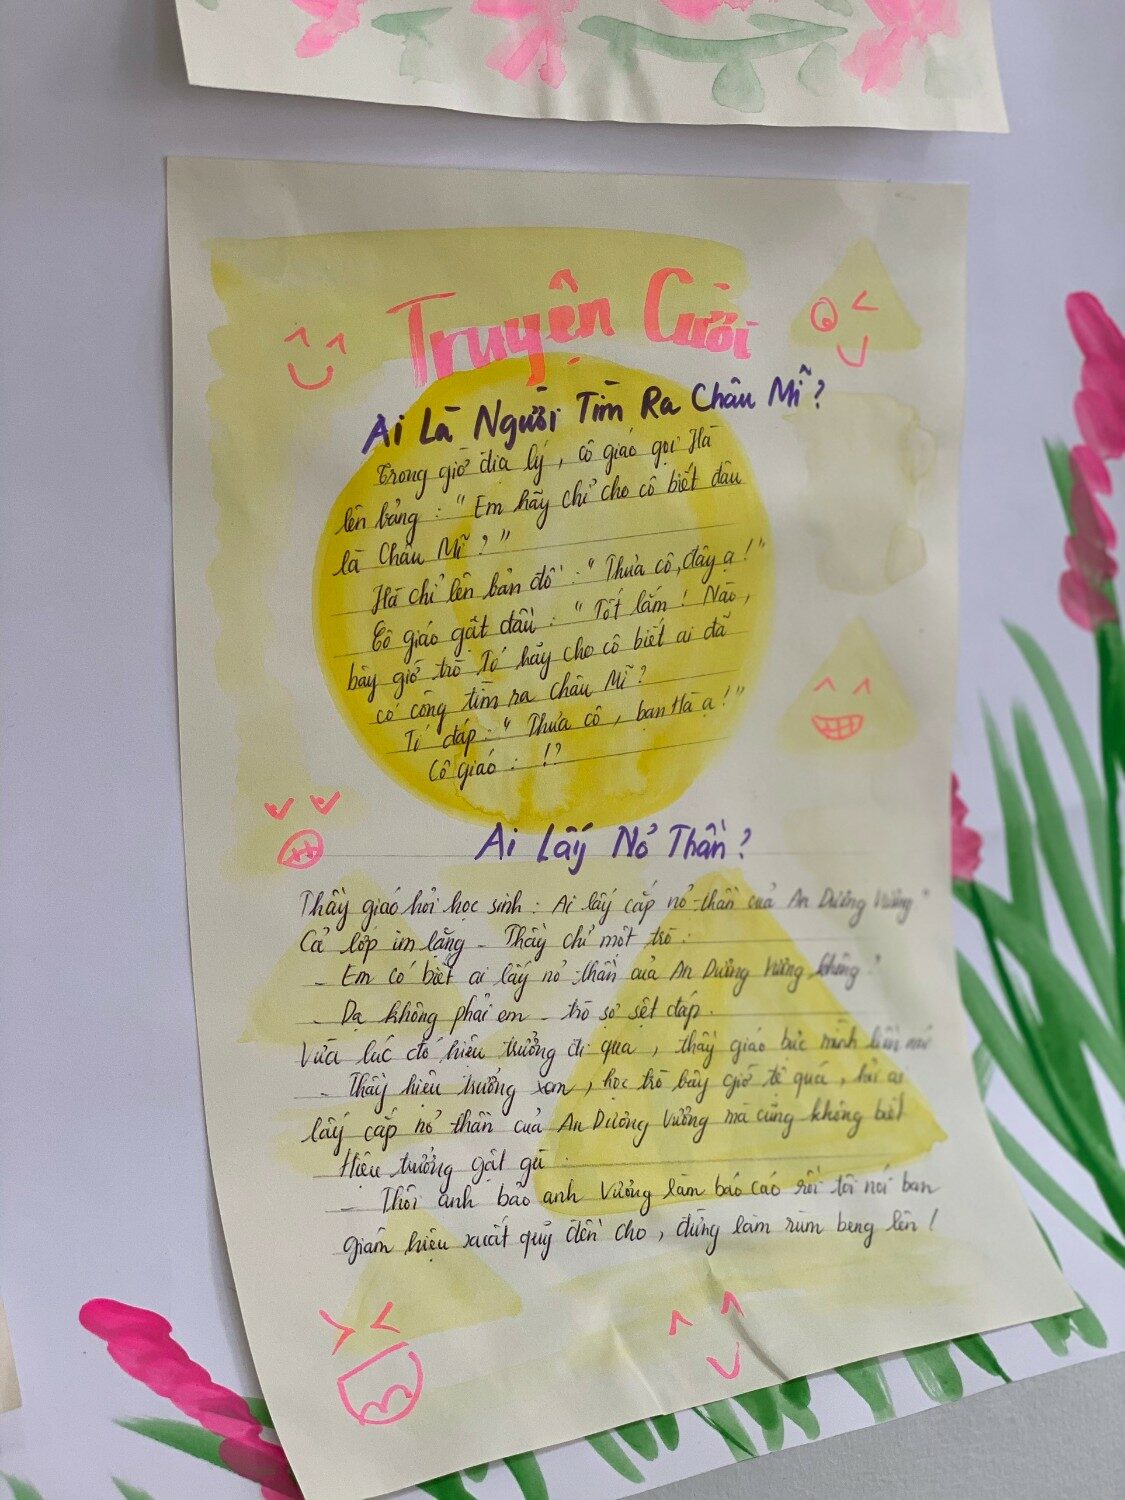 Truyện Cười
Ai Là Người Tìm Ra Châu Mĩ?
Trong giờ địa lý, cô giáo gọi Hà
lên bảng: "Em hãy chỉ cho cô biết đâu
là Châu Mĩ?"
Hà chỉ lên bản đồ: "Thưa cô, đây ạ!"
Cô giáo gật đầu: "Tốt lắm! Nào,
bây giờ trò Tí hãy cho cô biết ai đã
có công tìm ra châu Mĩ?
Tí đáp: "Thưa cô, bạn Hà ạ!"
Cô giáo: !?
Ai Lấy Nỏ Thần?
Thầy giáo hỏi học sinh: Ai lấy cắp nỏ thần của An Dương Vương"
Cả lớp im lặng - Thầy chỉ một trò:
- Em có biết ai lấy nỏ thần của An Dương Vương không?
- Dạ không phải em - trò sợ sệt đáp.
Vừa lúc đó hiệu trưởng đi qua, thầy giáo bực mình liền nói
- Thầy hiệu trưởng xem, học trò bây giờ tệ quá, hỏi ai
lấy cắp nỏ thần của An Dương Vương mà cũng không biết
Hiệu trưởng gật gù:
- Thôi anh bảo anh Vương làm báo cáo rồi tôi nói ban
giám hiệu xuất quỹ đền cho, đừng làm rùm beng lên!